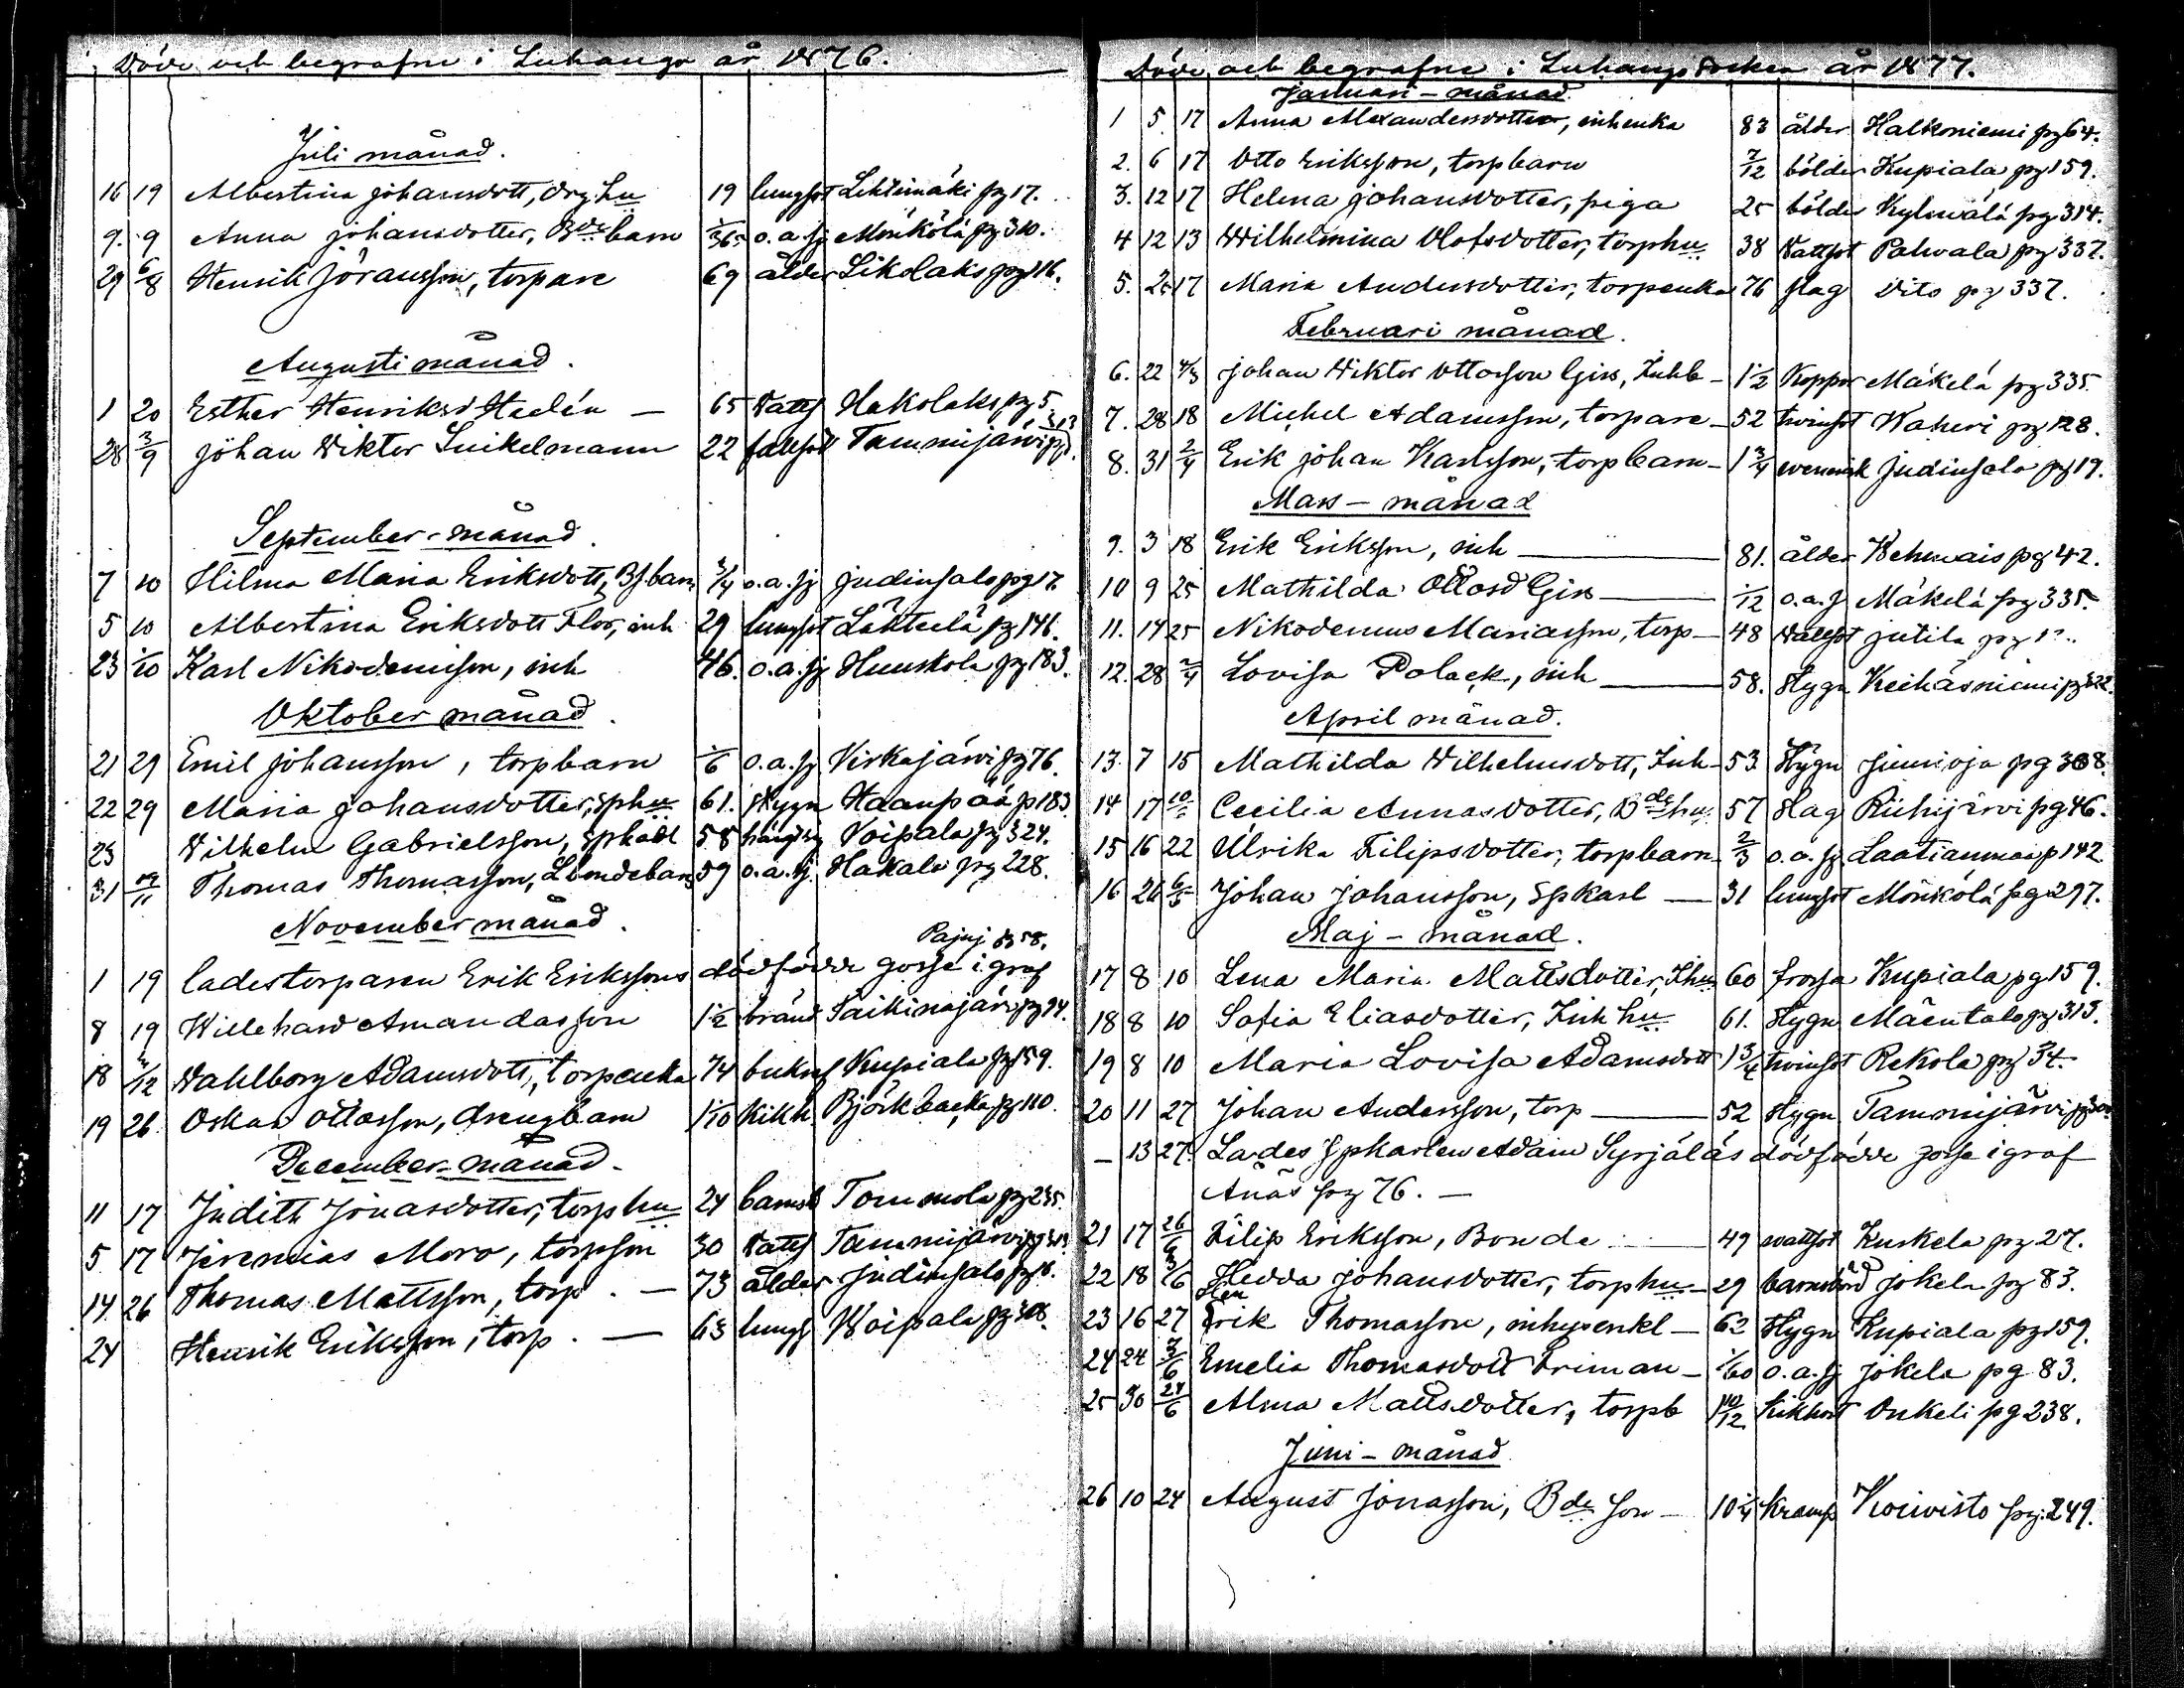 Döde och begrafne i Luhango år 1876.
Juli månad.
16 19 Albertina Johansdott, drg. hu 19 lungsot Lehtimäki pg 17.
9. 9 Anna Johansdotter, Bde barn 1/365 o.a.sj Mönkölä pg 310.
29 6/8 Henrik Göransson, torpare 69 ålder Likolaks pg 116.
Augusti månad.
1 20 Esther Henriksd Hedén — 65 Ватts Hakolaks pg 5
28 3/9 Johan Viktor Suikelmann 22 Tammijärvi pg 313
September-månad.
7 10 Hilma Maria Eriksdott, Bs. barn 3/4 o.a.sj Judinsalo pg 17.
5 10 Albertina Eriksdott Flor, inh 29 lungsot Lähteelä pg 146.
23 1/10 Karl Nikodemison, inh 46. o.a.sj Huuskola pg 183.
Oktober månad.
21 29 Emil Johansson, torpbarn 1/6 o.a.sj Virkajärvi pg 76.
22 29 Maria Johansdotter, Sphu 61. Hygn Haanpää p 183
23 Vilhelm Gabrielsson, Spkarl 58 Voipala pg 324.
31 Thomas Thomasson, 59 o.a.sj. Hakala pg 228.
November månad.
Pajuj pg 58.
1 19 ladestorparen Erik Erikssons dödfödde gosse i graf
8 19 Willehard Amandasson 1 1/2 bränd Taikinajärvi pg 94.
18 2/12 Wahlborg Adamsdott, torpenka 74 bukref Kupiala pg 159.
19 26 Oskar Ottosson, drengbarn 1 1/10 kikh Björkbacka pg 110.
December-månad.
11 17 Judith Jonasdotter, torphu 24 barnsb Tommola pg 235.
5 17 Jeremias Moro, torpson 30 Vatts Tammijärvi pg 313
14 26 Thomas Mattsson, torp. — 73 ålder Judinsalo pg 18.
24 Henrik Eriksson, torp. — 63 lungs Woipala pg 308.
Döde och begrafne i Luhango socken år 1877.
Januari - månad
1 5 17 Anna Alexandersdotter, inhenka 83 ålder Halkoniemi pg 64.
2. 6 17 Otto Eriksson, torpbarn 7/12 bölder Kupiala pg 159.
3. 12 17 Helena Johansdotter, piga 25 bölder Kylmälä pg 314.
4 12 13 Wilhelmina Olofsdotter, torphu 38 Vattsot Pahvala pg 337.
5. 25 17 Maria Andersdotter, torpenka 76 slag Dito pg 337.
Februari månad.
6. 22 4/3 Johan Wiktor Ottosson Giss, Inhb - 1 1/2 Koppor Mäkelä pg 335.
7. 28 18 Michel Adamsson, torpare - 52 twinsot Waheri pg 128.
8. 31 2/4 Erik Johan Karlsson, torpbarn - 1 3/4 Judinsalo pg 19.
Mars - månad
9. 3 18 Erik Eriksson, inh — 81. ålder Wehmais pg 42.
10 9 25 Mathilda Ottosd Giss — 1/12 o.a.sj Mäkelä pg 335.
11. 14 25 Nikodemus Mariasson, torp - 48 Vattsot Jutila pg
12. 28 2/4 Lovisa Polack, inh — 58. Hygn Keihäsniemi pg 322.
April månad.
13. 7 15 Mathilda Wilhelmsdott, Inh - 53 Hygn Junioja pg 308.
14 17 Cecilia Annasdotter, Bde hu 57 Slag Riihijärvi pg 46.
15 16 22 Ulrika Filipsdotter, torpbarn 2/3 o.a.sj Laatianmaa p 142
16 26 6/5 Johan Johansson, Spkarl — 31 lungsot Mönkölä pg 297.
Maj - månad.
17 8 10 Lena Maria Mattsdotter, Ihu 60 frossa Kupiala pg 159.
18 8 10 Sofia Eliasdotter, Inh hu 61. Hygn Mäentalo pg 313.
19 8 10 Maria Lovisa Adamsdott 1 3/4 twinsot Rekola pg 34.
20 11 27 Johan Andersson, torp — 52 Hygn Tammijärvi
– 13 27. Lades Spkarlen Adam Syrjäläs dödfödde gosse i graf
Änäs pg 76. —
21 17 26/6 Filip Eriksson, Bonde — 49 wattsot Kuskela pg 27.
22 18 3/6 Hedda Johansdotter, torphu - 29 barnsbörd Jokela pg 83.
23 16 27 Hen Erik Thomasson, inhysenkl - 62 Hygn Kupiala pg 159.
24 24 3/6 Emelia Thomasdott Friman - 1/60 o.a.sj Jokela pg 83.
25 30 24/6 Alma Mattsdotter, torpb 1 10/12 kikhost Onkeli pg 238.
Juni - månad
26 10 24 August Jonasson, Bde son - 10 1/4 kramp Koivisto pg 249.